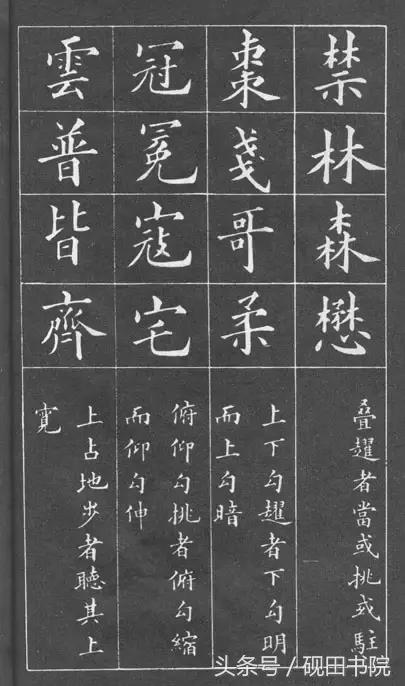 禁林森懋
疊趯者當或挑或駐
棗戔哥柔
上下勾趯者下勾明
而上勾暗
冠冕寇宅
俯仰勾挑者俯勾縮
而仰勾伸
雲普皆齊
上占地步者聽其上
寬
头条号/砚田书院